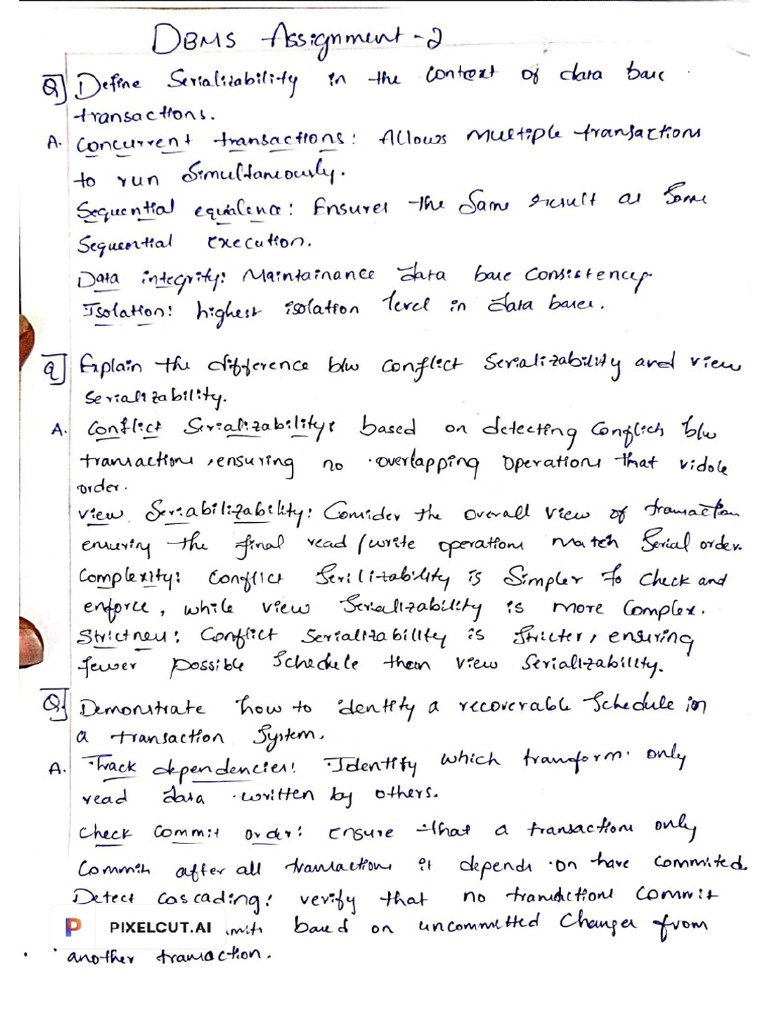 DBMS Assignment-2
Q] Define Serializability in the context of data base
transactions.
A. Concurrent transactions: Allows multiple transactions
to run Simultaneously.
Sequential equialence: Ensures the Same result as Some
Sequential Execution.
Data integrity: Maintainance data base Consistency.
Isolation: highest isolation level in data bases.
Q] Explain the difference b/w conflict Serializability and view
Serializability.
A. Conflict Serializability: based on detecting Conflicts b/w
transactions, ensuring no overlapping operations that vidole
order.
View Seriabilizability: Consider the overall view of transaction
ensuring the final read/write operations match Serial order.
Complexity: Conflict Serilitability is Simpler to check and
enforce, while view Serializability is more Complex.
Strictness: Conflict Serializability is Stricter, ensuring
fewer possible Schedule them view Serializability.
Q] Demonstrate how to identity a recoverable Schedule in
a transaction System.
A. Track dependencies: Identify which transform only
read data written by others.
Check Commit order: ensure that a transactions only
Commits after all transactions it depends on have commited.
Detect Cascading: verify that no transactions commit
PIXELCUT.AI based on uncommitted Changes from
another transaction.